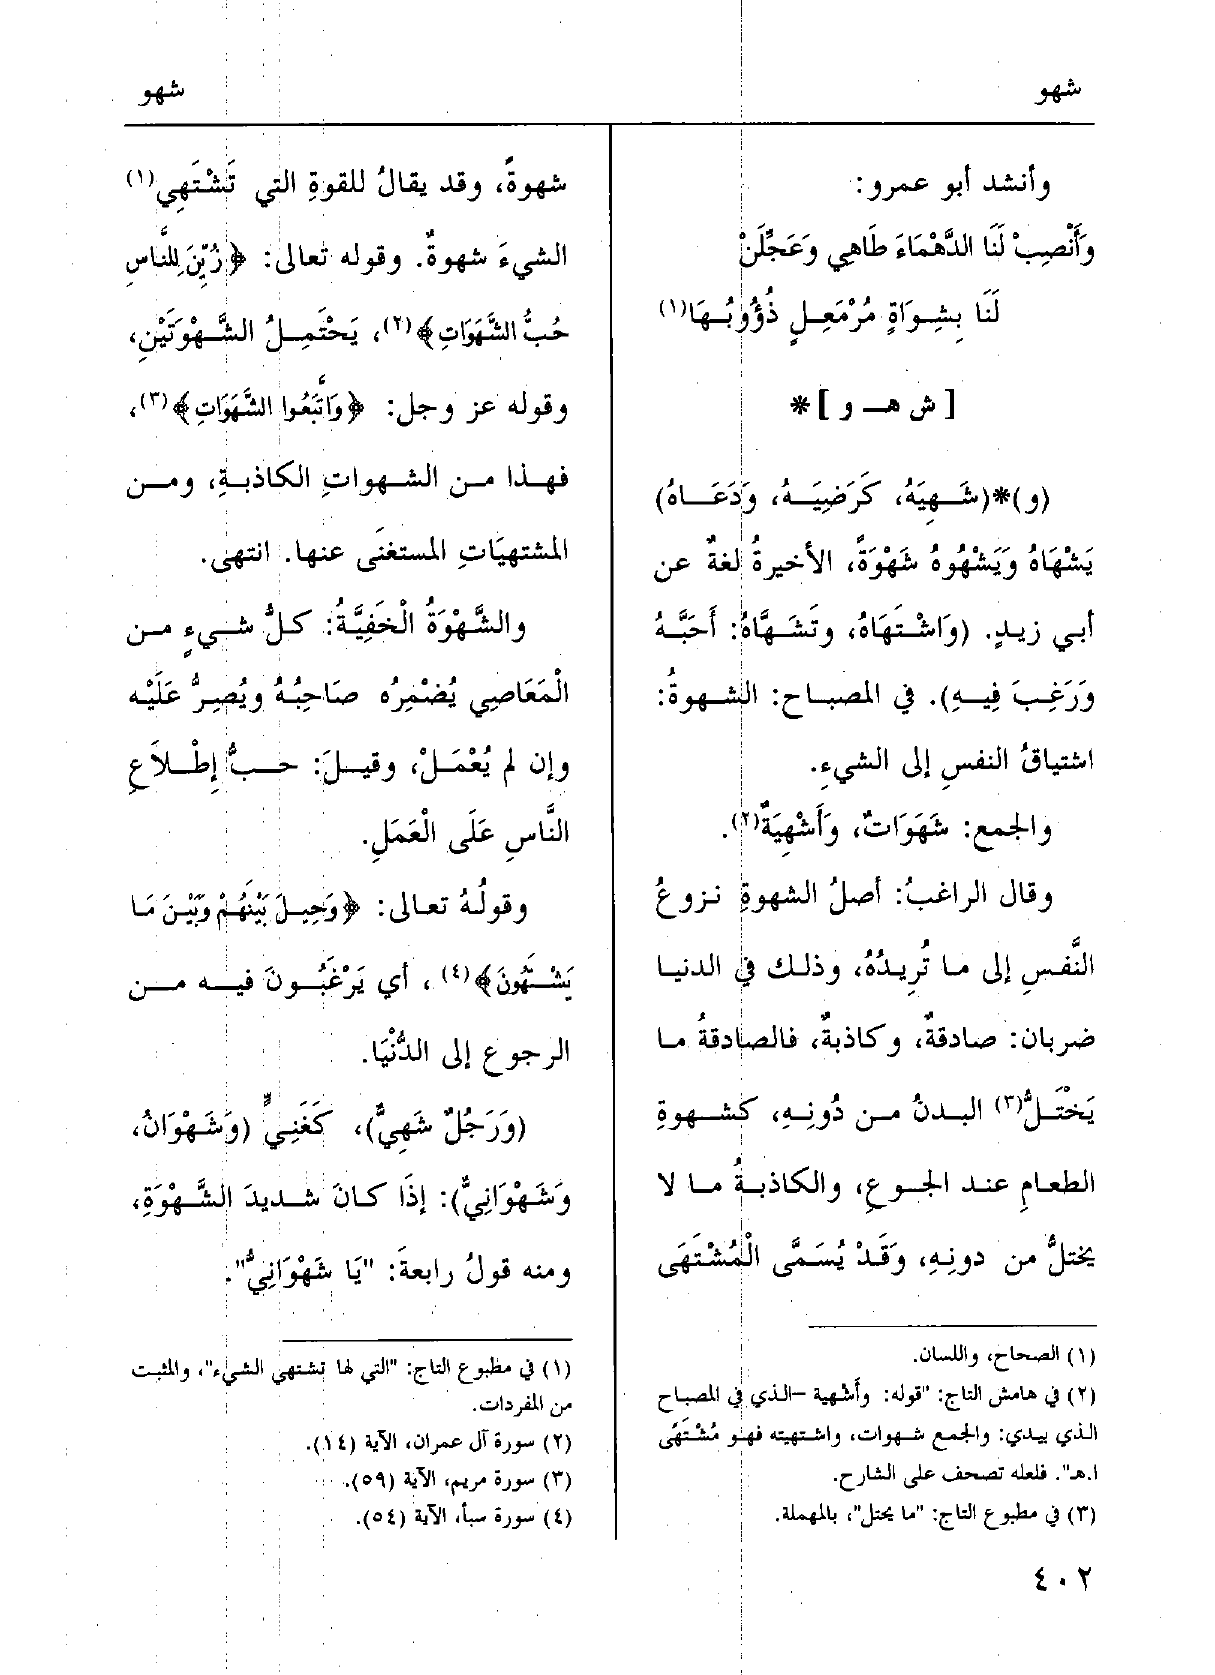 شهو
شهو
وأنشد أبو عمرو:
وَأَنْصِبْ لَنَا الدَّهْمَاءَ طَاهِي وَعَجِّلَنْ
لَنَا بِشِوَاةٍ مُرْمَعِلٍ ذُؤُوبُهَا(١)
[ ش هـ و ] *
(و)*(شَهِيَهُ، كَرَضِيَهُ، وَدَعَاهُ)
يَشْهَاهُ وَيَشْهُوهُ شَهْوَةً، الأخيرةُ لغةٌ عن
أبي زيدٍ. (وَاشْتَهَاهُ، وتَشَهَّاهُ: أَحَبَّهُ
وَرَغِبَ فِيهِ). في المصباح: الشهوةُ:
اشتياقُ النفسِ إلى الشيءِ.
والجمع: شَهَوَاتٌ، وَأَشْهِيَةٌ(٢).
وقال الراغبُ: أصلُ الشهوةِ نزوعُ
النَّفسِ إلى ما تُرِيدُهُ، وذلك في الدنيا
ضربان: صادقةٌ، وكاذبةٌ، فالصادقةُ ما
يَخْتَلُّ(٣) البدنُ من دُونِهِ، كشهوةِ
الطعامِ عند الجوعِ، والكاذبةُ ما لا
يختلُّ من دونِهِ، وَقَدْ يُسَمَّى الْمُشْتَهَى
(١) الصحاح، واللسان.
(٢) في هامش التاج: "قوله: وأَشهية –الذي في المصباح
الذي بيدي: والجمع شهوات، واشتهيته فهو مُشْتَهًى
ا.هـ". فلعله تصحف على الشارح.
(٣) في مطبوع التاج: "ما يحتل"، بالمهملة.
شهوةً، وقد يقالُ للقوةِ التي تَشْتَهِي(١)
الشيءَ شهوةٌ. وقوله تعالى: ﴿زُيِّنَ لِلنَّاسِ
حُبُّ الشَّهَوَاتِ﴾(٢)، يَحْتَمِلُ الشَّهْوَتَيْنِ،
وقوله عز وجل: ﴿وَاتَّبَعُوا الشَّهَوَاتِ﴾(٣)،
فهذا من الشهواتِ الكاذبةِ، ومن
المشتهيَاتِ المستغنَى عنها. انتهى.
والشَّهْوَةُ الْخَفِيَّةُ: كلُّ شيءٍ من
الْمَعَاصِي يُضْمِرُه صَاحِبُهُ ويُصِرُّ عَلَيْه
وإن لم يُعْمَلْ، وقيلَ: حبُّ إِطْلاَعِ
النَّاسِ عَلَى الْعَمَلِ.
وقولُهُ تعالى: ﴿وَحِيلَ بَيْنَهُمْ وَبَيْنَ مَا
يَشْتَهُونَ﴾(٤)، أي يَرْغَبُونَ فيه من
الرجوع إلى الدُّنْيَا.
(وَرَجُلٌ شَهِيٌّ)، كَغَنِيٍّ (وَشَهْوَانُ،
وَشَهْوَانِيٌّ): إِذَا كَانَ شديدَ الشَّهْوَةِ،
ومنه قولُ رابعةَ: "يَا شَهْوَانِيُّ".
(١) في مطبوع التاج: "التي لها تشتهي الشيء"، والمثبت
من المفردات.
(٢) سورة آل عمران، الآية (١٤).
(٣) سورة مريم، الآية (٥٩).
(٤) سورة سبأ، الآية (٥٤).
٤٠٢